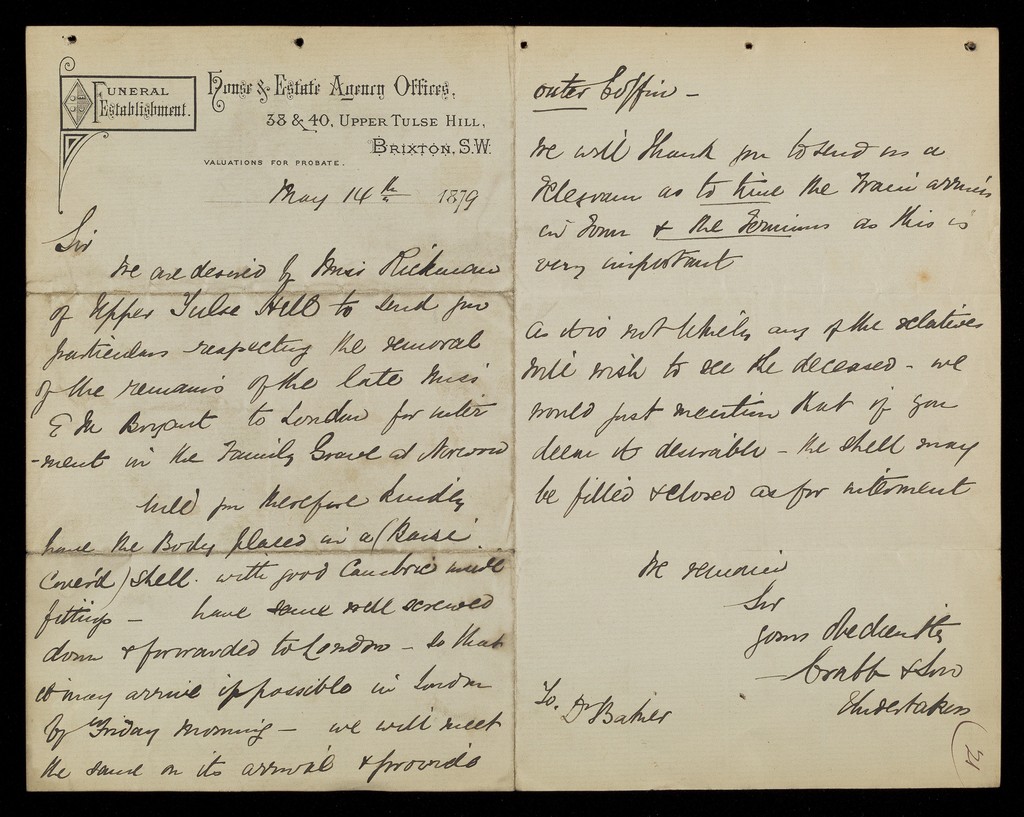 FUNERAL
Establishment.
House & Estate Agency Offices,
38 & 40, UPPER TULSE HILL,
BRIXTON, S.W.
VALUATIONS FOR PROBATE.
May 14th 1879
Sir
We are desired by Miss Rickman
of Upper Tulse Hill to send you
particulars respecting the removal
of the remains of the late Miss
E M Bryant to London for inter
-ment in the Family Grave at Norwood
Will you therefore kindly
have the Body placed in a (Baize
Cover'd) shell. with good Cambric
fittings — have same well screwed
down & forwarded to London — so that
it may arrive if possible in London
by Friday Morning — we will meet
the same on its arrival & provide
outer Coffin —
We will thank you to send us a
Telegram as to time the Train arrives
in Town & the Terminus as this is
very important
As it is not likely any of the relatives
will wish to see the deceased - we
would just mention that if you
deem it desirable - the shell may
be filled & closed as for interment
We remain
Sir
Yours Obediently
Crabb & Son
Undertakers
To. Dr Baker